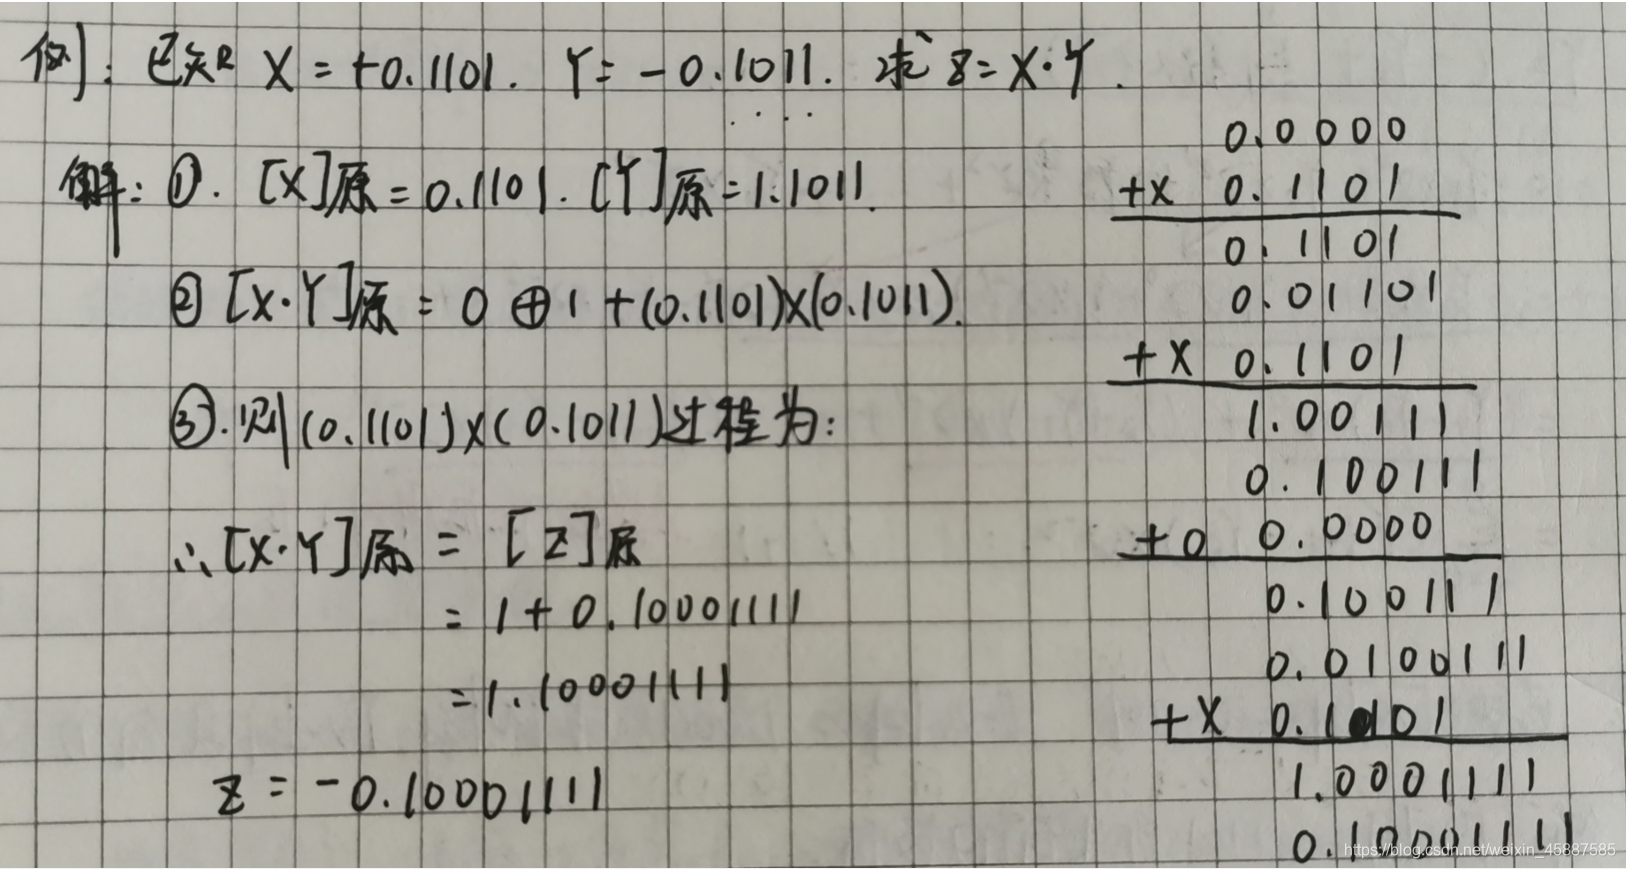 例：已知 X = +0.1101. Y = -0.1011. 求 Z = X·Y.
解：①. [X]原 = 0.1101. [Y]原 = 1.1011.
② [X·Y]原 = 0 ⊕ 1 + (0.1101)×(0.1011).
③. 则(0.1101)×(0.1011)过程为：
∴ [X·Y]原 = [Z]原
= 1 + 0.10001111
= 1.10001111
Z = -0.10001111
0.0000
+X 0.1101
0.1101
0.01101
+X 0.1101
1.00111
0.100111
+0 0.0000
0.100111
0.0100111
+X 0.1101
1.0001111
0.10001111
https://blog.csdn.net/weixin_45887585